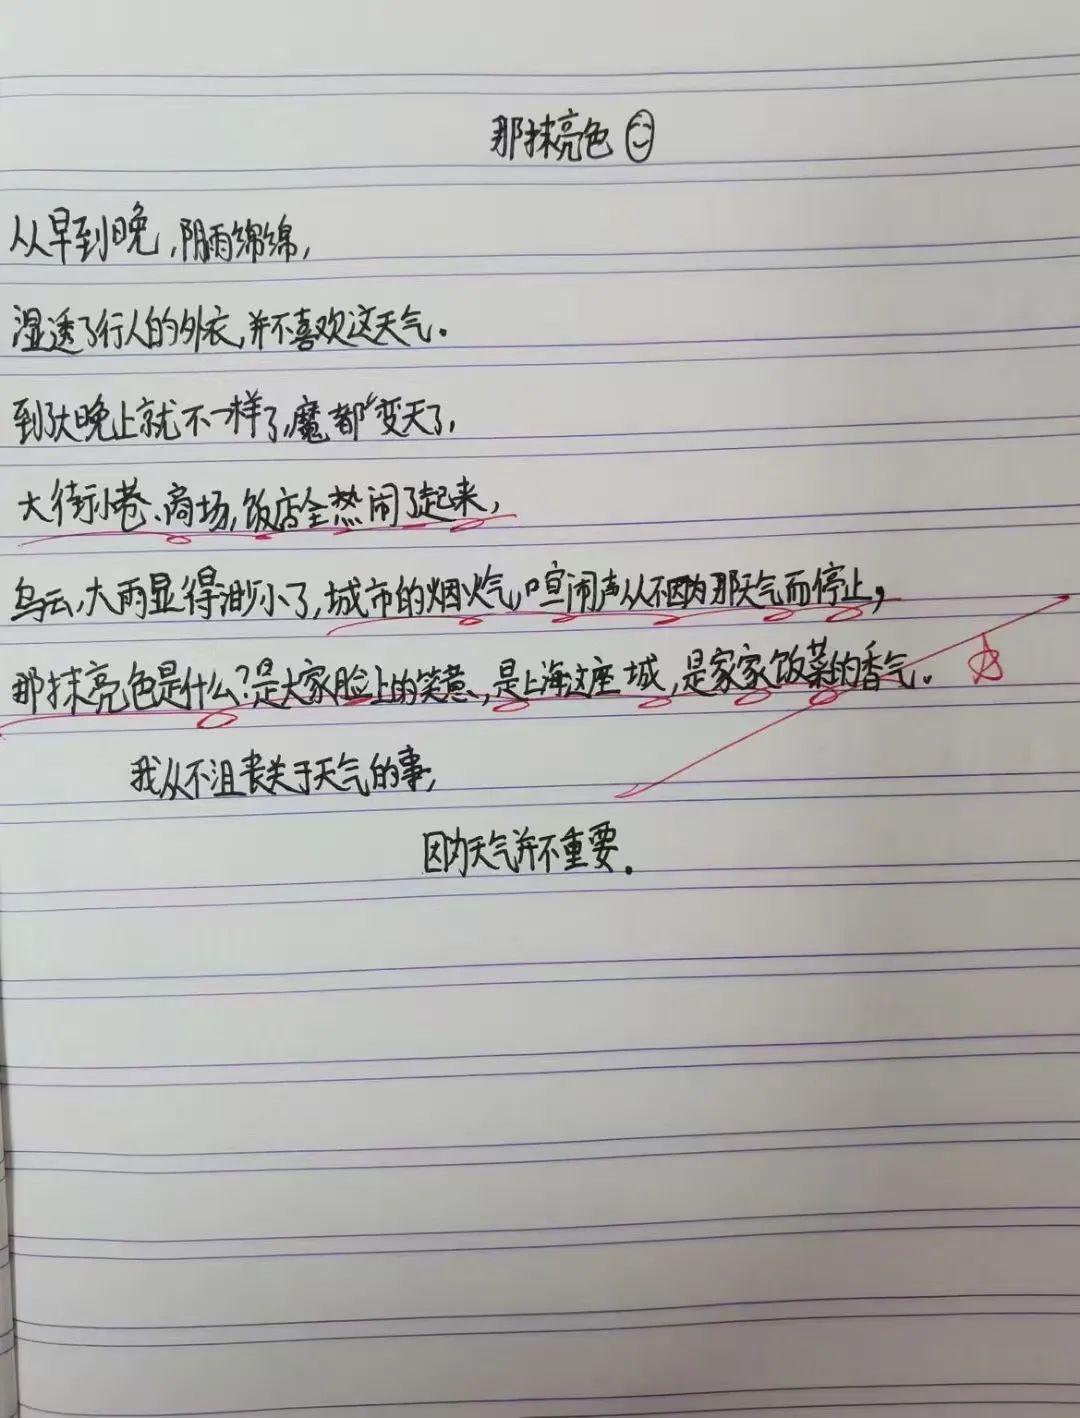 那抹亮色
从早到晚,阴雨绵绵,
湿透了行人的外衣,并不喜欢这天气。
到了大晚上就不一样了,魔都“变天了,
大街小巷、商场,饭店全热闹了起来,
乌云,大雨显得渺小了,城市的烟火气,喧闹声从不因为那天气而停止,
那抹亮色是什么?是大家脸上的笑意,是上海这座城,是家家饭菜的香气。
我从不沮丧关于天气的事,
因为天气并不重要.